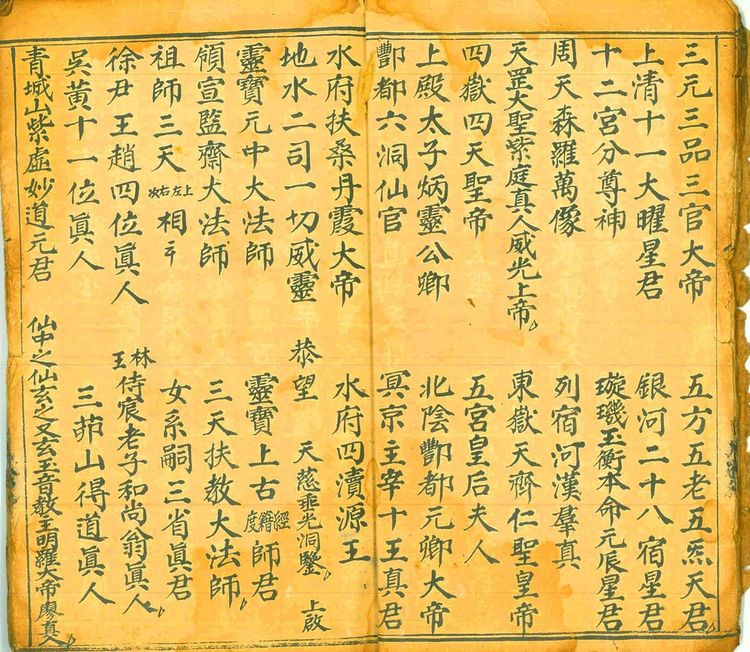 三元三品三官大帝 五方五老五炁天君
上清十一大曜星君 銀河二十八宿星君
十二宮分尊神 璇璣玉衡本命元辰星君
周天森羅萬像 列宿河漢羣真
天罡大聖紫庭真人威光上帝 東嶽天齊仁聖皇帝
四嶽四天聖帝 五宮皇后夫人
上殿太子炳靈公卿 北陰酆都元卿大帝
酆都六洞仙官 冥京主宰十王真君
水府扶桑丹霞大帝 水府四瀆源王
地水二司一切威靈 恭望 天慈垂光洞鑒 上啟
靈寶元中大法師 靈寶上古經籍度師君
領宣監齋大法師 三天扶教大法師
祖師三天上左右次相 女系嗣三省眞君
徐尹王趙四位眞人 林王侍宸老子和尚翁眞人
吳黃十一位眞人 三茆山得道眞人
青城山紫虛妙道元君 仙中之仙玄之又玄玉音教主明羅大帝廖真人